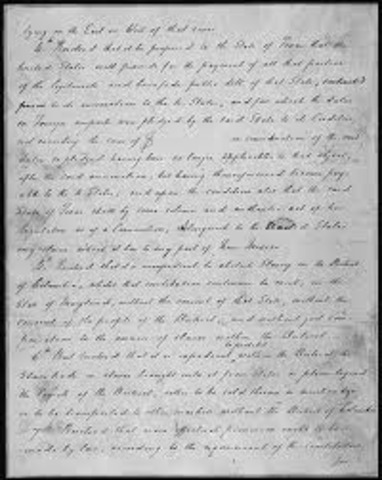 lying on the East or West of that river.
4th Resolved that it be proposed to the State of Texas that the
United States will provide for the payment of all that portion
of the legitimate and bona fide public debt of that State, contracted
prior to its annexation to the U. States, and for which the duties
on foreign imports were pledged by the said State to its Creditors,
not exceeding the sum of $ in consideration of the said
duties so pledged having been no longer applicable to that object,
after the said annexation, but having thenceforward become pay-
able to the U. States; and upon the condition also that the said
State of Texas shall by some solemn and authentic act of her
Legislature or of a Convention, relinquish to the United States
any claim which it has to any part of New Mexico.
5th Resolved that it is inexpedient to abolish Slavery in the District
of Columbia, whilst that institution continues to exist in the
State of Maryland, without the consent of that State, without the
consent of the people of the District, and without just com-
pensation to the owners of slaves within the District.
6th But Resolved that it is expedient to prohibit within the District, the
Slave trade in slaves brought into it from States or places beyond
the limits of the District, either to be sold therein as merchandize,
or to be transported to other markets without the District of Columbia.
7th Resolved that more effectual provision ought to be
made by law, according to the requirement of the constitution,
for